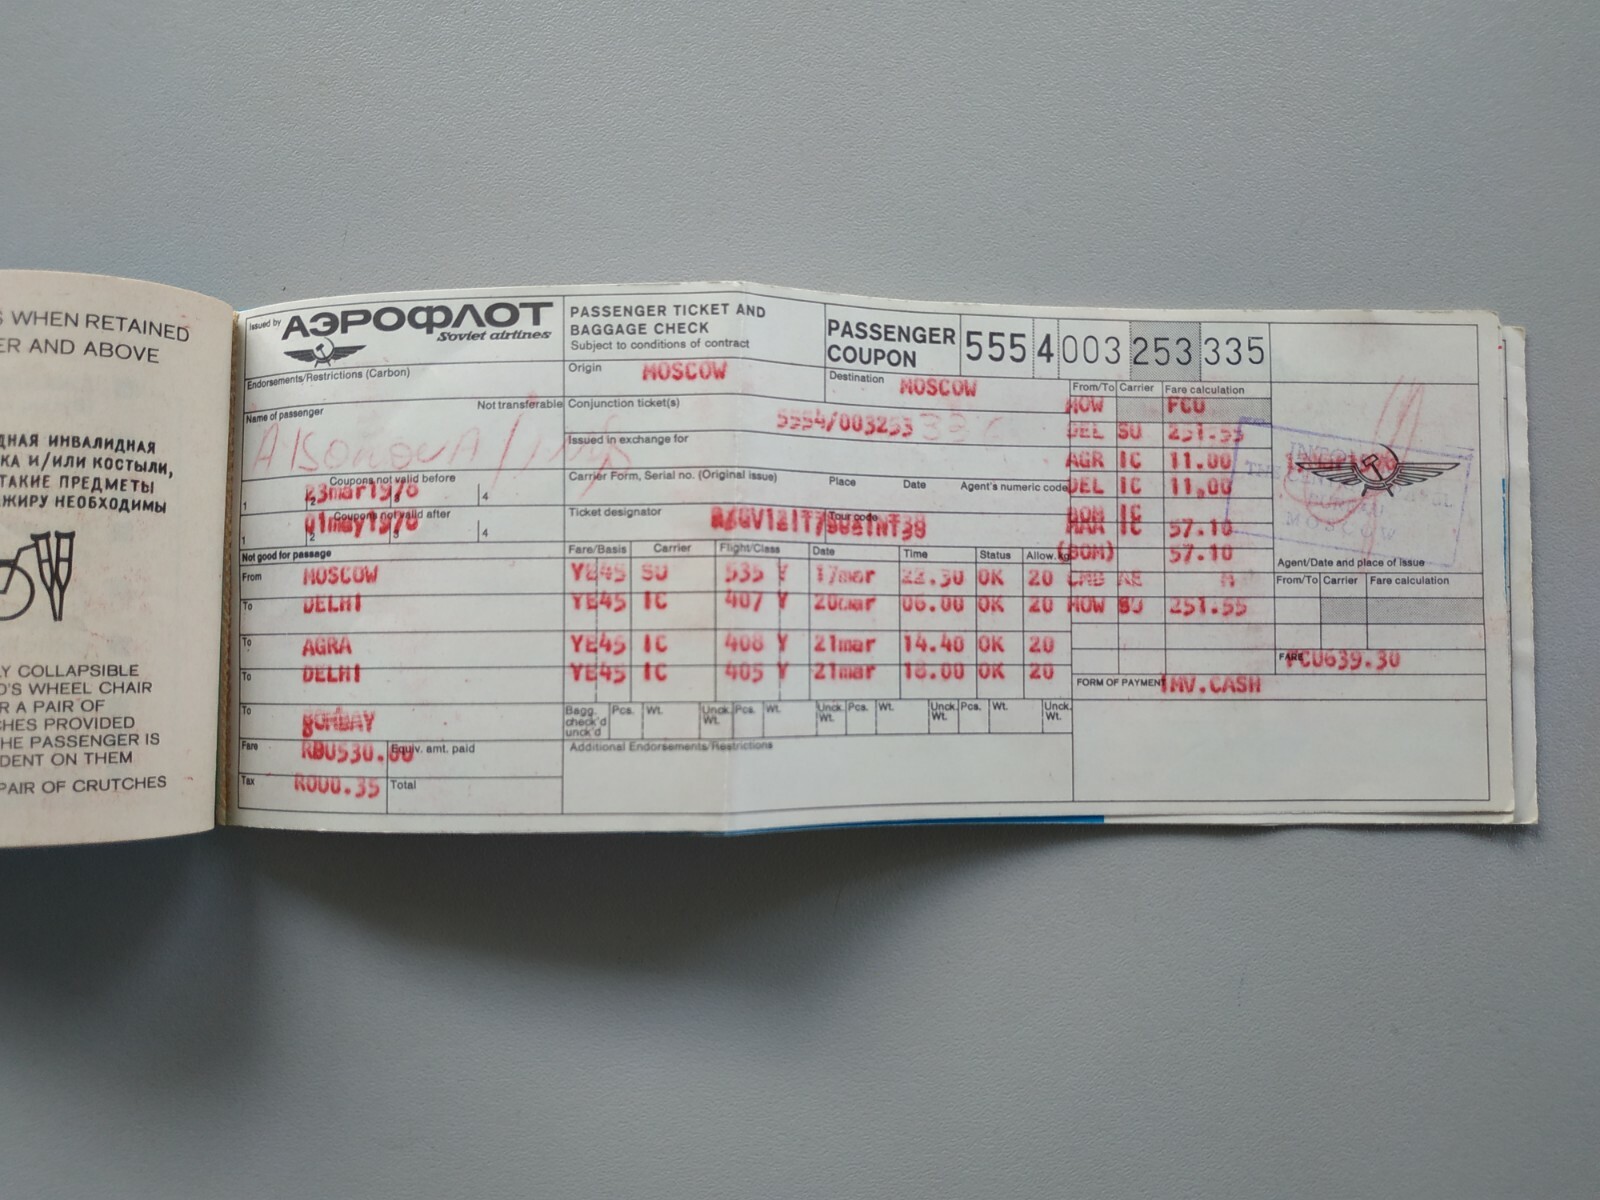 S WHEN RETAINED
ER AND ABOVE
ДНАЯ ИНВАЛИДНАЯ
КА И/ИЛИ КОСТЫЛИ,
ТАКИЕ ПРЕДМЕТЫ
ЖИРУ НЕОБХОДИМЫ
Y COLLAPSIBLE
D'S WHEEL CHAIR
R A PAIR OF
CHES PROVIDED
HE PASSENGER IS
DENT ON THEM
PAIR OF CRUTCHES
Issued by АЭРОФЛОТ
Soviet airlines
PASSENGER TICKET AND
BAGGAGE CHECK
Subject to conditions of contract
PASSENGER
COUPON
555 4 003 253 335
Endorsements/Restrictions (Carbon)
Origin MOSCOW
Destination MOSCOW
Name of passenger Not transferable
Conjunction ticket(s) 5554/003253
Issued in exchange for
Coupons not valid before
23mar1978
1 2 4
Carrier Form, Serial no. (Original issue) Place Date Agent's numeric code
Coupons not valid after
01may1978
1 2 3 4
Ticket designator Tour code
Not good for passage Fare/Basis Carrier Flight/Class Date Time Status Allow. kg
From MOSCOW YE45 SU 535 Y 17mar 22.30 OK 20
To DELHI YE45 IC 407 Y 20mar 06.00 OK 20
To AGRA YE45 IC 408 Y 21mar 14.40 OK 20
To DELHI YE45 IC 405 Y 21mar 18.00 OK 20
To BOMBAY
Bagg. check'd unck'd Pcs. Wt. Unck. Wt. Pcs. Wt. Unck. Wt. Pcs. Wt. Unck. Wt. Pcs. Wt. Unck. Wt.
Fare RBU530.00 Equiv. amt. paid
Additional Endorsements/Restrictions
Tax ROU0.35 Total
From/To Carrier Fare calculation
MOW FCU
DEL SU 251.55
AGR IC 11.00
DEL IC 11.00
BOM IC
57.10
(BOM) 57.10
CMB AE M
MOW SU 251.55
FORM OF PAYMENT INV.CASH
MOSCOW
Agent/Date and place of issue
From/To Carrier Fare calculation
FARE FCU639.30